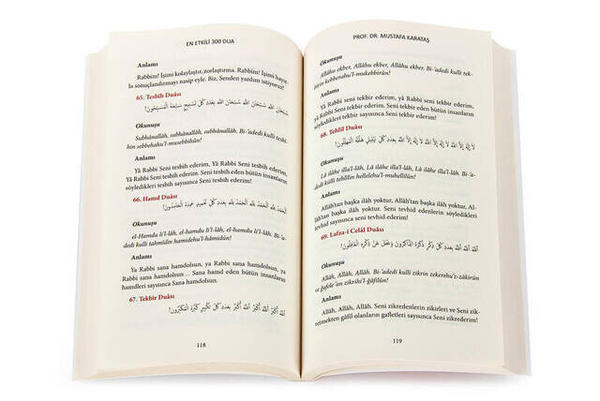 EN ETKİLİ 300 DUA
Anlamı
Rabbim! İşimi kolaylaştır, zorlaştırma. Rabbim! İşimi hayır-
la sonuçlandırmayı nasip eyle. Biz, Senden yardım istiyoruz!
65. Tesbih Duâsı
سُبْحَانَ اللّٰهِ سُبْحَانَ اللّٰهِ سُبْحَانَ اللّٰهِ بِعَدَدِ كُلِّ تَسْبِيحٍ سَبَّحَهُ الْمُسَبِّحُونَ!
Okunuşu
Subhânallâh, subhânallâh, subhânallâh. Bi-'adedi kulli tesbî-
hin sebbehahu'l-musebbihûn!
Anlamı
Yâ Rabbi Seni tesbih ederim, Yâ Rabbi Seni tesbih ederim,
Yâ Rabbi Seni tesbih ederim. Seni tesbih eden bütün insanların
söyledikleri tesbih sayısınca Seni tesbih ederim!
66. Hamd Duâsı
الْحَمْدُ لِلّٰهِ الْحَمْدُ لِلّٰهِ الْحَمْدُ لِلّٰهِ بِعَدَدِ كُلِّ تَحْمِيدٍ حَمِدَهُ الْحَامِدُونَ!
Okunuşu
el-Hamdu li'l-lâh, el-hamdu li'l-lâh, el-hamdu li'l-lâh. Bi-'a-
dedi kulli tahmîdin hamidehu'l-hâmidûn!
Anlamı
Ya Rabbi sana hamdolsun, ya Rabbi sana hamdolsun, ya
Rabbi sana hamdolsun... Sana hamd eden bütün insanların
hamdleri sayısınca Sana hamdolsun.
67. Tekbir Duâsı
اَللّٰهُ اَكْبَرُ اَللّٰهُ اَكْبَرُ اَللّٰهُ اَكْبَرُ بِعَدَدِ كُلِّ تَكْبِيرٍ كَبَّرَهُ الْمُكَبِّرُونَ!
118
PROF. DR. MUSTAFA KARATAŞ
Okunuşu
Allâhu ekber, Allâhu ekber, Allâhu ekber. Bi-'adedi kulli tek-
bîrin kebberahu'l-mukebbirûn!
Anlamı
Yâ Rabbi Seni tekbir ederim, yâ Rabbi Seni tekbir ederim,
yâ Rabbi Seni tekbir ederim. Seni tekbir eden bütün insanların
söyledikleri tekbir sayısınca Seni tekbir ederim!
68. Tehlîl Duâsı
لَا اِلٰهَ اِلَّا اللّٰهُ لَا اِلٰهَ اِلَّا اللّٰهُ لَا اِلٰهَ اِلَّا اللّٰهُ بِعَدَدِ كُلِّ تَهْلِيلٍ هَلَّلَهُ الْمُهَلِّلُونَ!
Okunuşu
Lâ ilâhe illa'l-lâh, Lâ ilâhe illa'l-lâh, Lâ ilâhe illa'l-lâh. Bi-'adedi
kulli tehlîlin hellelehu'l-muhellilûn!
Anlamı
Allah'tan başka ilâh yoktur, Allah'tan başka ilâh yoktur,
Allah'tan başka ilâh yoktur. Seni tevhid edenlerin söyledikleri
tevhid sayısınca Seni tevhid ederim!
69. Lafza-i Celâl Duâsı
اَللّٰهُ اَللّٰهُ اَللّٰهُ بِعَدَدِ كُلِّ ذِكْرٍ ذَكَرَهُ الذَّاكِرُونَ وَغَفَلَ عَنْ ذِكْرِهِ الْغَافِلُونَ!
Okunuşu
Allâh, Allâh, Allâh. Bi-'adedi kulli zikrin zekerehu'z-zâkirûn
ve ğafele 'an zikrihi'l-ğâfilûn!
Anlamı
Allâh, Allâh, Allâh. Seni zikredenlerin zikirleri ve Seni zik-
retmekten gâfil olanların gafletleri sayısınca Seni zikrederim!
119